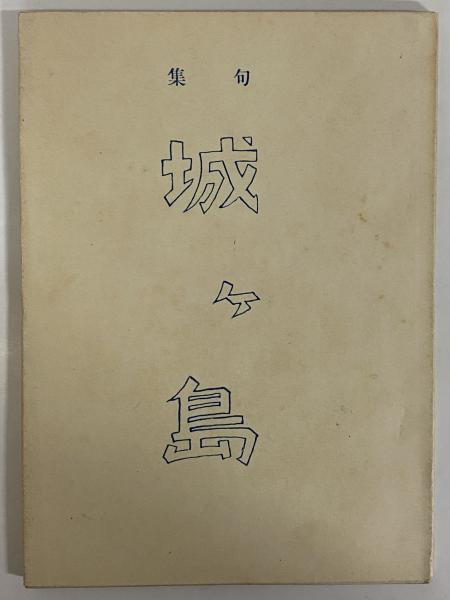 句集
城ヶ島